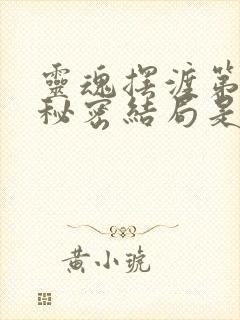 靈魂擺渡第
秘密結局是
黃小琥